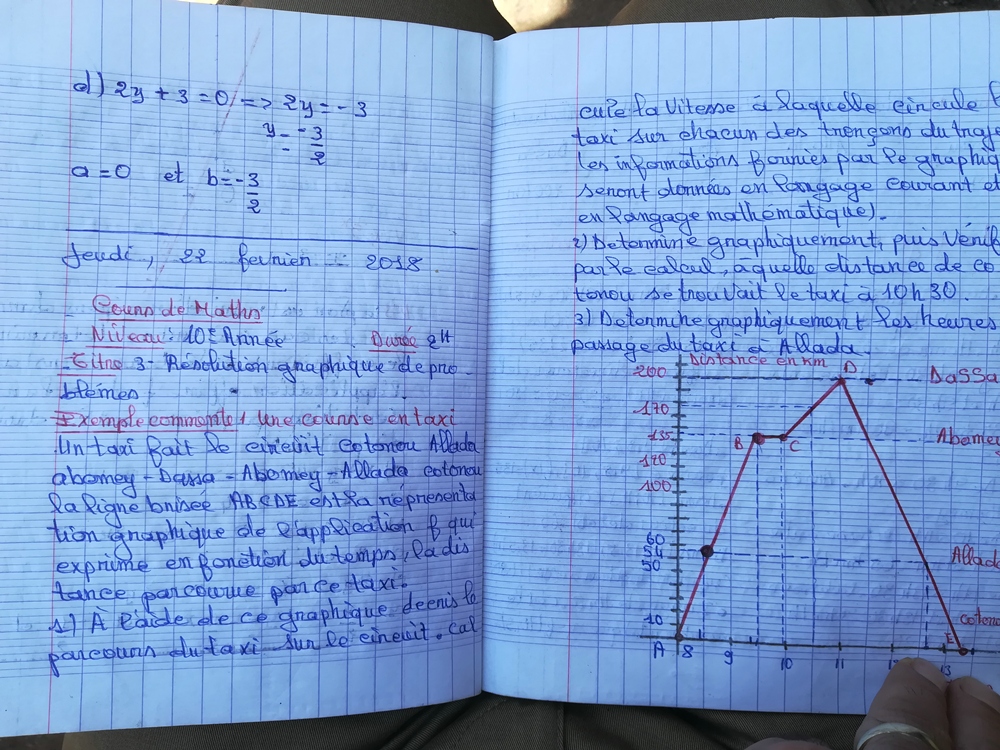 d) 2y + 3 = 0 => 2y = - 3
y = -3/2
a = 0 et b = -3/2
Jeudi, 22 fevrier : 2018
Cours de Maths
Niveau : 10e Année Durée 2H
Titre 3 - Résolution graphique de pro
blémes
Exemple commenté 1 Une course en taxi
Un taxi fait le circuit cotonou Allada
abomey - Dassa - Abomey - Allada cotonou
la ligne brisée ABCDE est la représenta
tion graphique de l'application f qui
exprime en fonction du temps, la dis
tance parcourue par ce taxi.
1) À l'aide de ce graphique decris le
parcours du taxi sur le circuit. cal
cule la vitesse à laquelle circule
taxi sur chacun des tronçons du traje
les informations fournies par le graphiq
seront données en langage courant et
en langage mathématique).
2) Determine graphiquement, puis vérif
par le calcul, à quelle distance de co
tonou se trouvait le taxi à 10h30.
3) Determine graphiquement les heures
passage du taxi à Allada.
Distance en km
200 D Dassa
170
135 B C Abomey
120
100
60
54 Allad
50
10 cotono
A 8 9 10 11 12 13 E